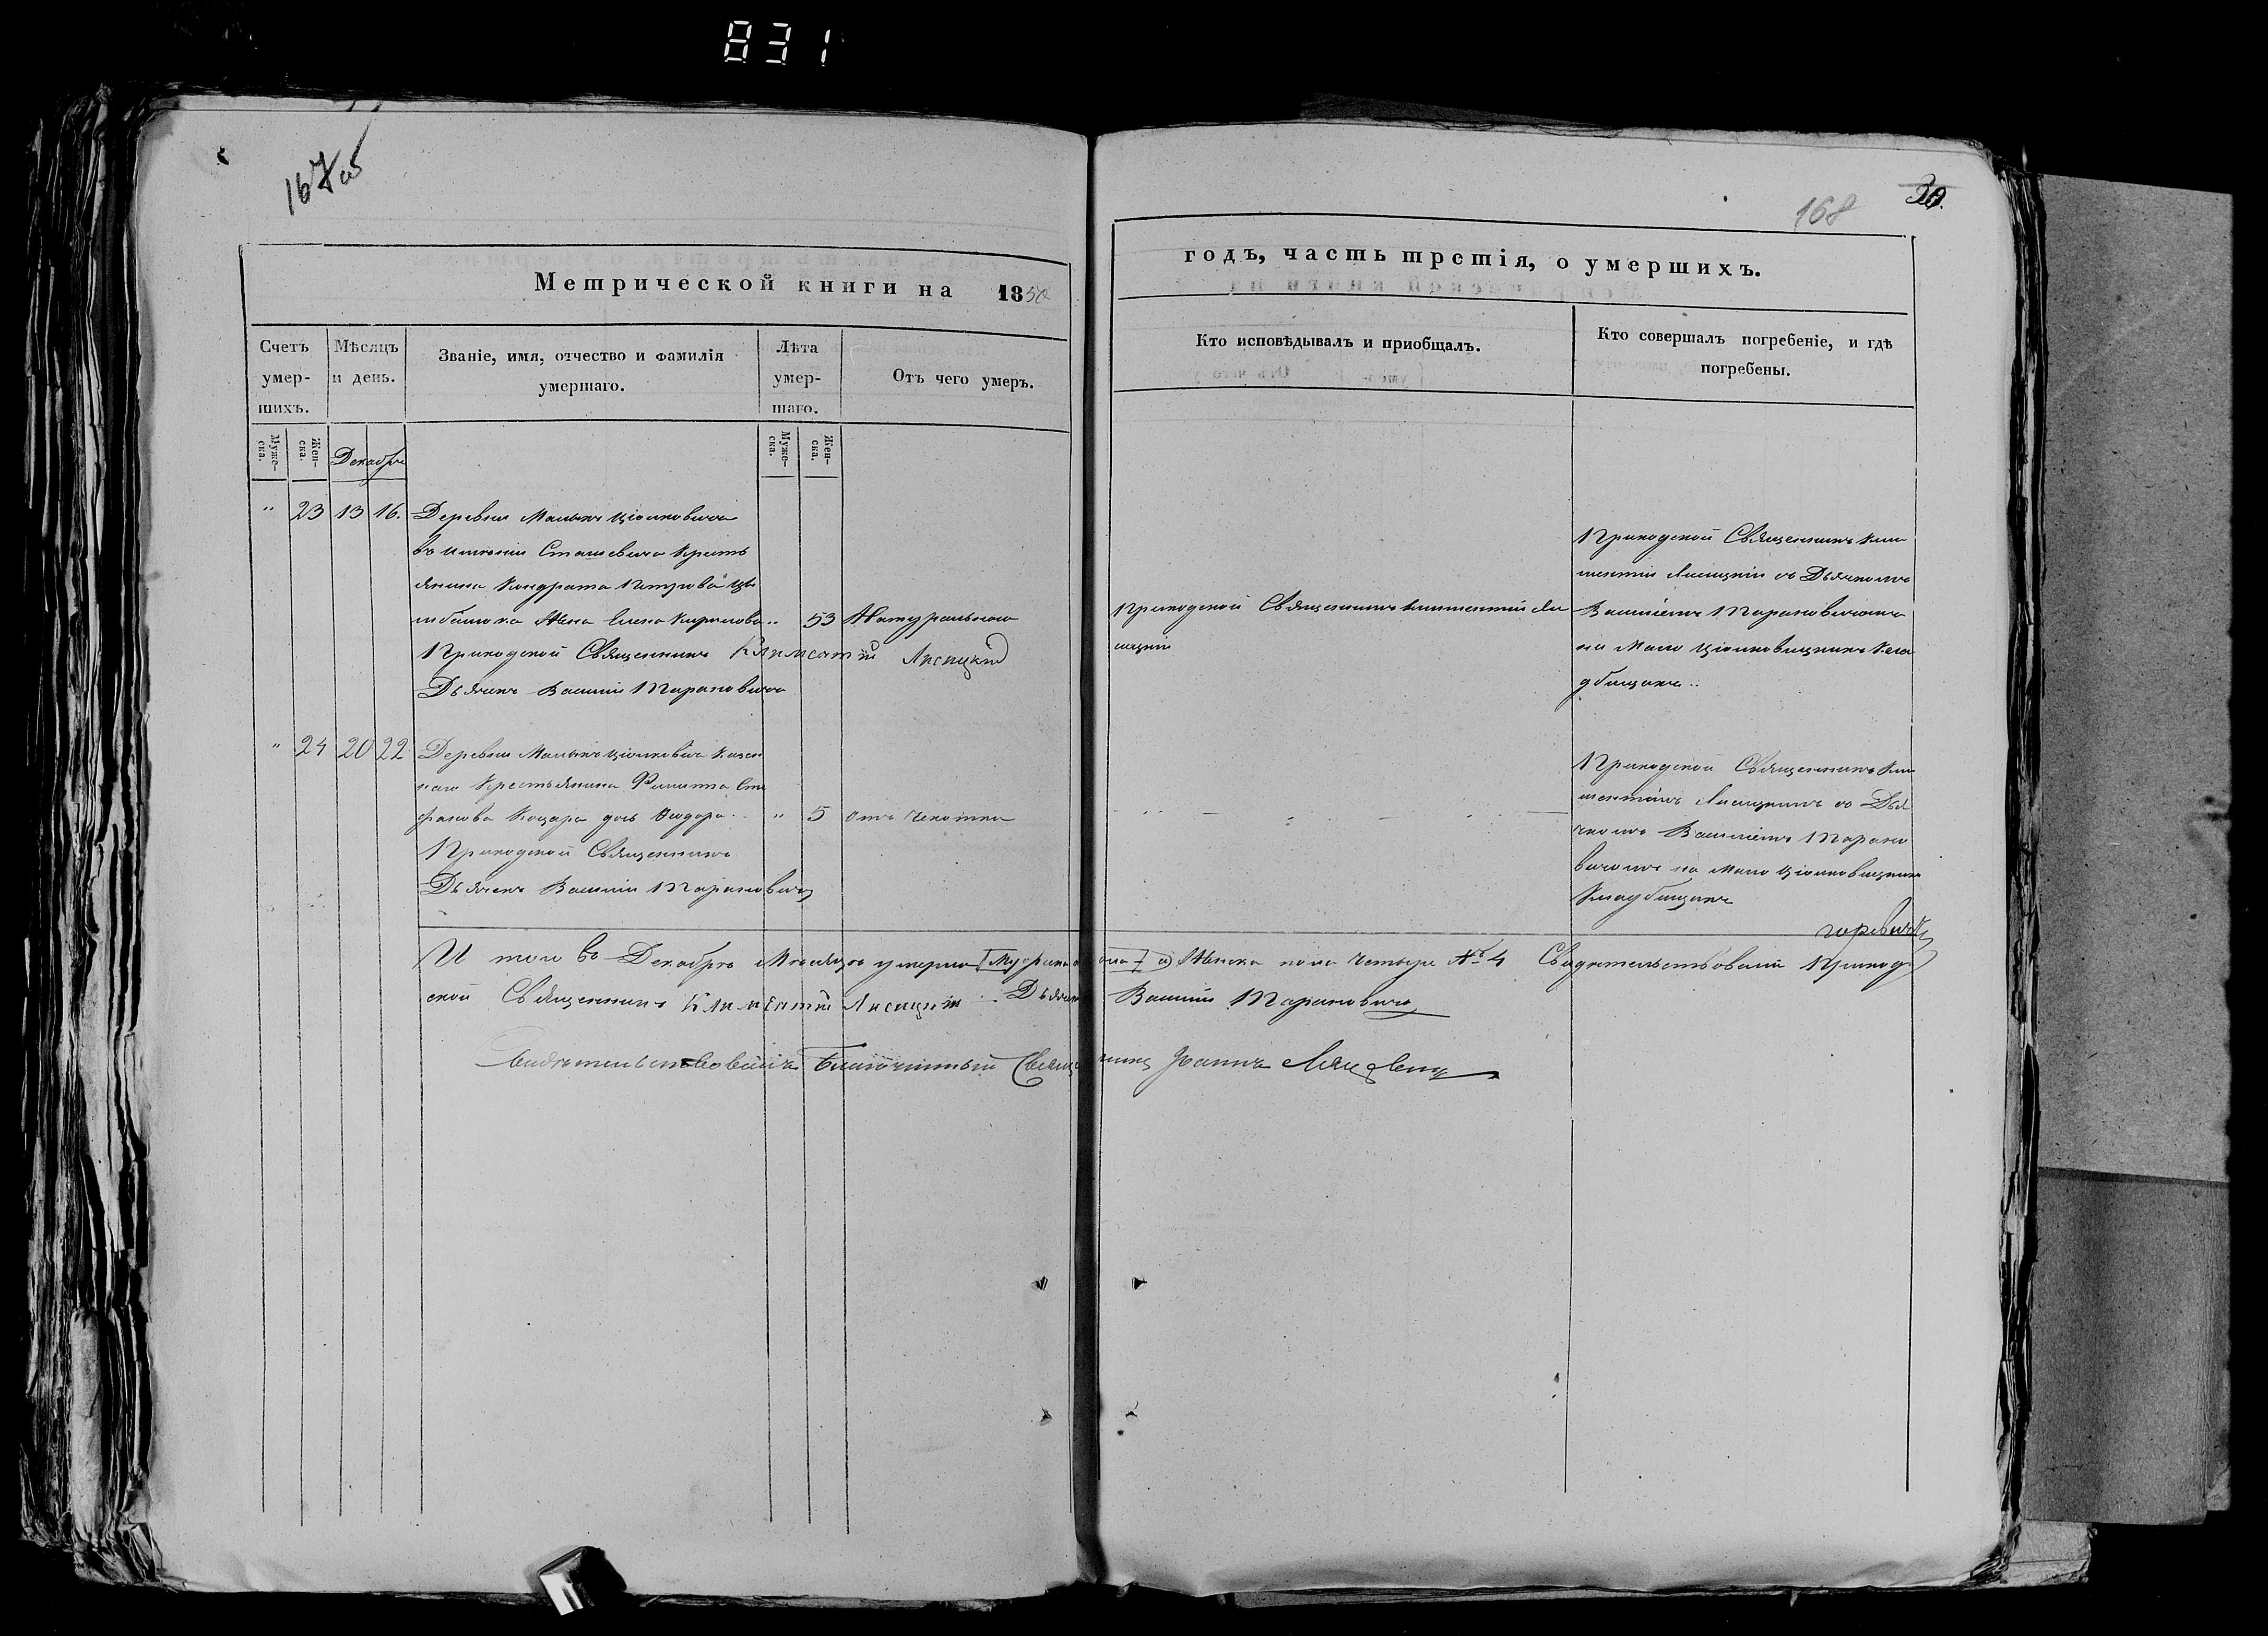 831
167 об
168
30.
Метрической книги на 1850
годъ, часть третія, о умершихъ.
Счетъ умер-
шихъ.
Мѣсяцъ
и день.
Званіе, имя, отчество и фамилія
умершаго.
Лѣта
умер-
шаго.
Отъ чего умеръ.
Кто исповѣдывалъ и приобщалъ.
Кто совершалъ погребеніе, и гдѣ
погребены.
Муже-
ска.
Жен-
ска.
Декабрь
Муже-
ска.
Жен-
ска.
" 23 13 16. Деревни Малыхъ Ціолковичъ
въ имѣніи Сташевича Кресть
янина Кондрата Петрова
жена Елена Кирилова " 53 Натурально
Приходской Священникъ Климентій Лисицкій
Дьячекъ Василій Тарановичъ
Приходской Священникъ Климентій Ли
сицкій
Приходской Священникъ Кли
ментій Лисицкій съ Дьячкомъ
Василіемъ Тарановичомъ
на Мало Ціолковицкихъ Кла
дбищахъ
" 24 20 22 Деревни Малыхъ Ціолковичъ Казен
наго Крестьянина Филиппа Сте
фанова Коцара дочь Феодора " 5 отъ чехотки
Приходской Священникъ
Дьячекъ Василій Тарановичъ
Приходской Священникъ Кли
ментій Лисицкимъ со Дья
чкомъ Василіемъ Тарано
вичомъ на Мало Ціолковицкихъ
Кладбищахъ
И того въ Декабрѣ Мѣсяцѣ умерло Муж пола а Женска пола четыре № 4 Свидѣтельствовалъ Приход
ской Священникъ Климентій Лисицкій Дьячекъ Василій Тарановичъ
Свидѣтельствовалъ Благочинный Священникъ Іоаннъ